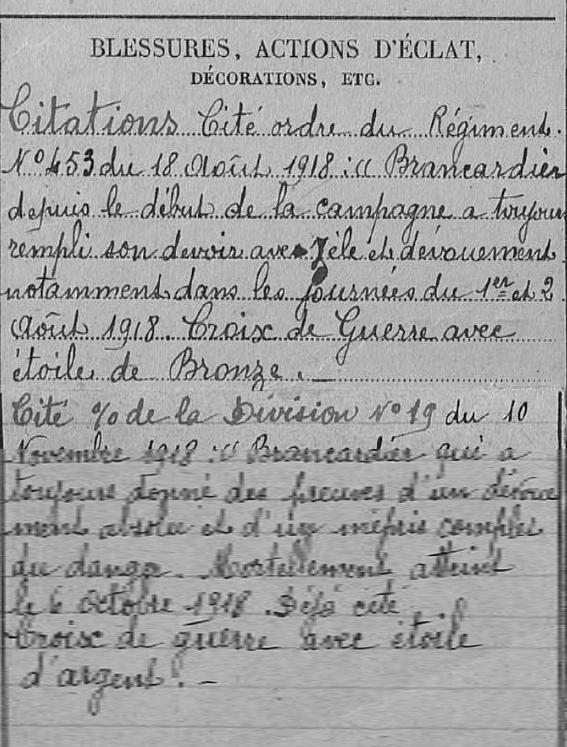 BLESSURES, ACTIONS D'ÉCLAT,
DÉCORATIONS, ETC.
Citations Cité ordre du Régiment.
N° 453 du 18 Août 1918 : « Brancardier
depuis le début de la campagne a toujours
rempli son devoir avec zèle et dévouement
notamment dans les journées du 1er et 2
Août 1918. Croix de Guerre avec
étoile de Bronze. —
Cité % de la Division N° 19 du 10
Novembre 1918 : « Brancardier qui a
toujours donné des preuves d'un dévoue
ment absolu et d'un mépris complet
du danger. Mortellement atteint
le 6 Octobre 1918. Déjà cité.
Croix de guerre avec étoile
d'argent. —